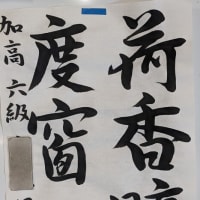 荷香
度窗
加高 六級